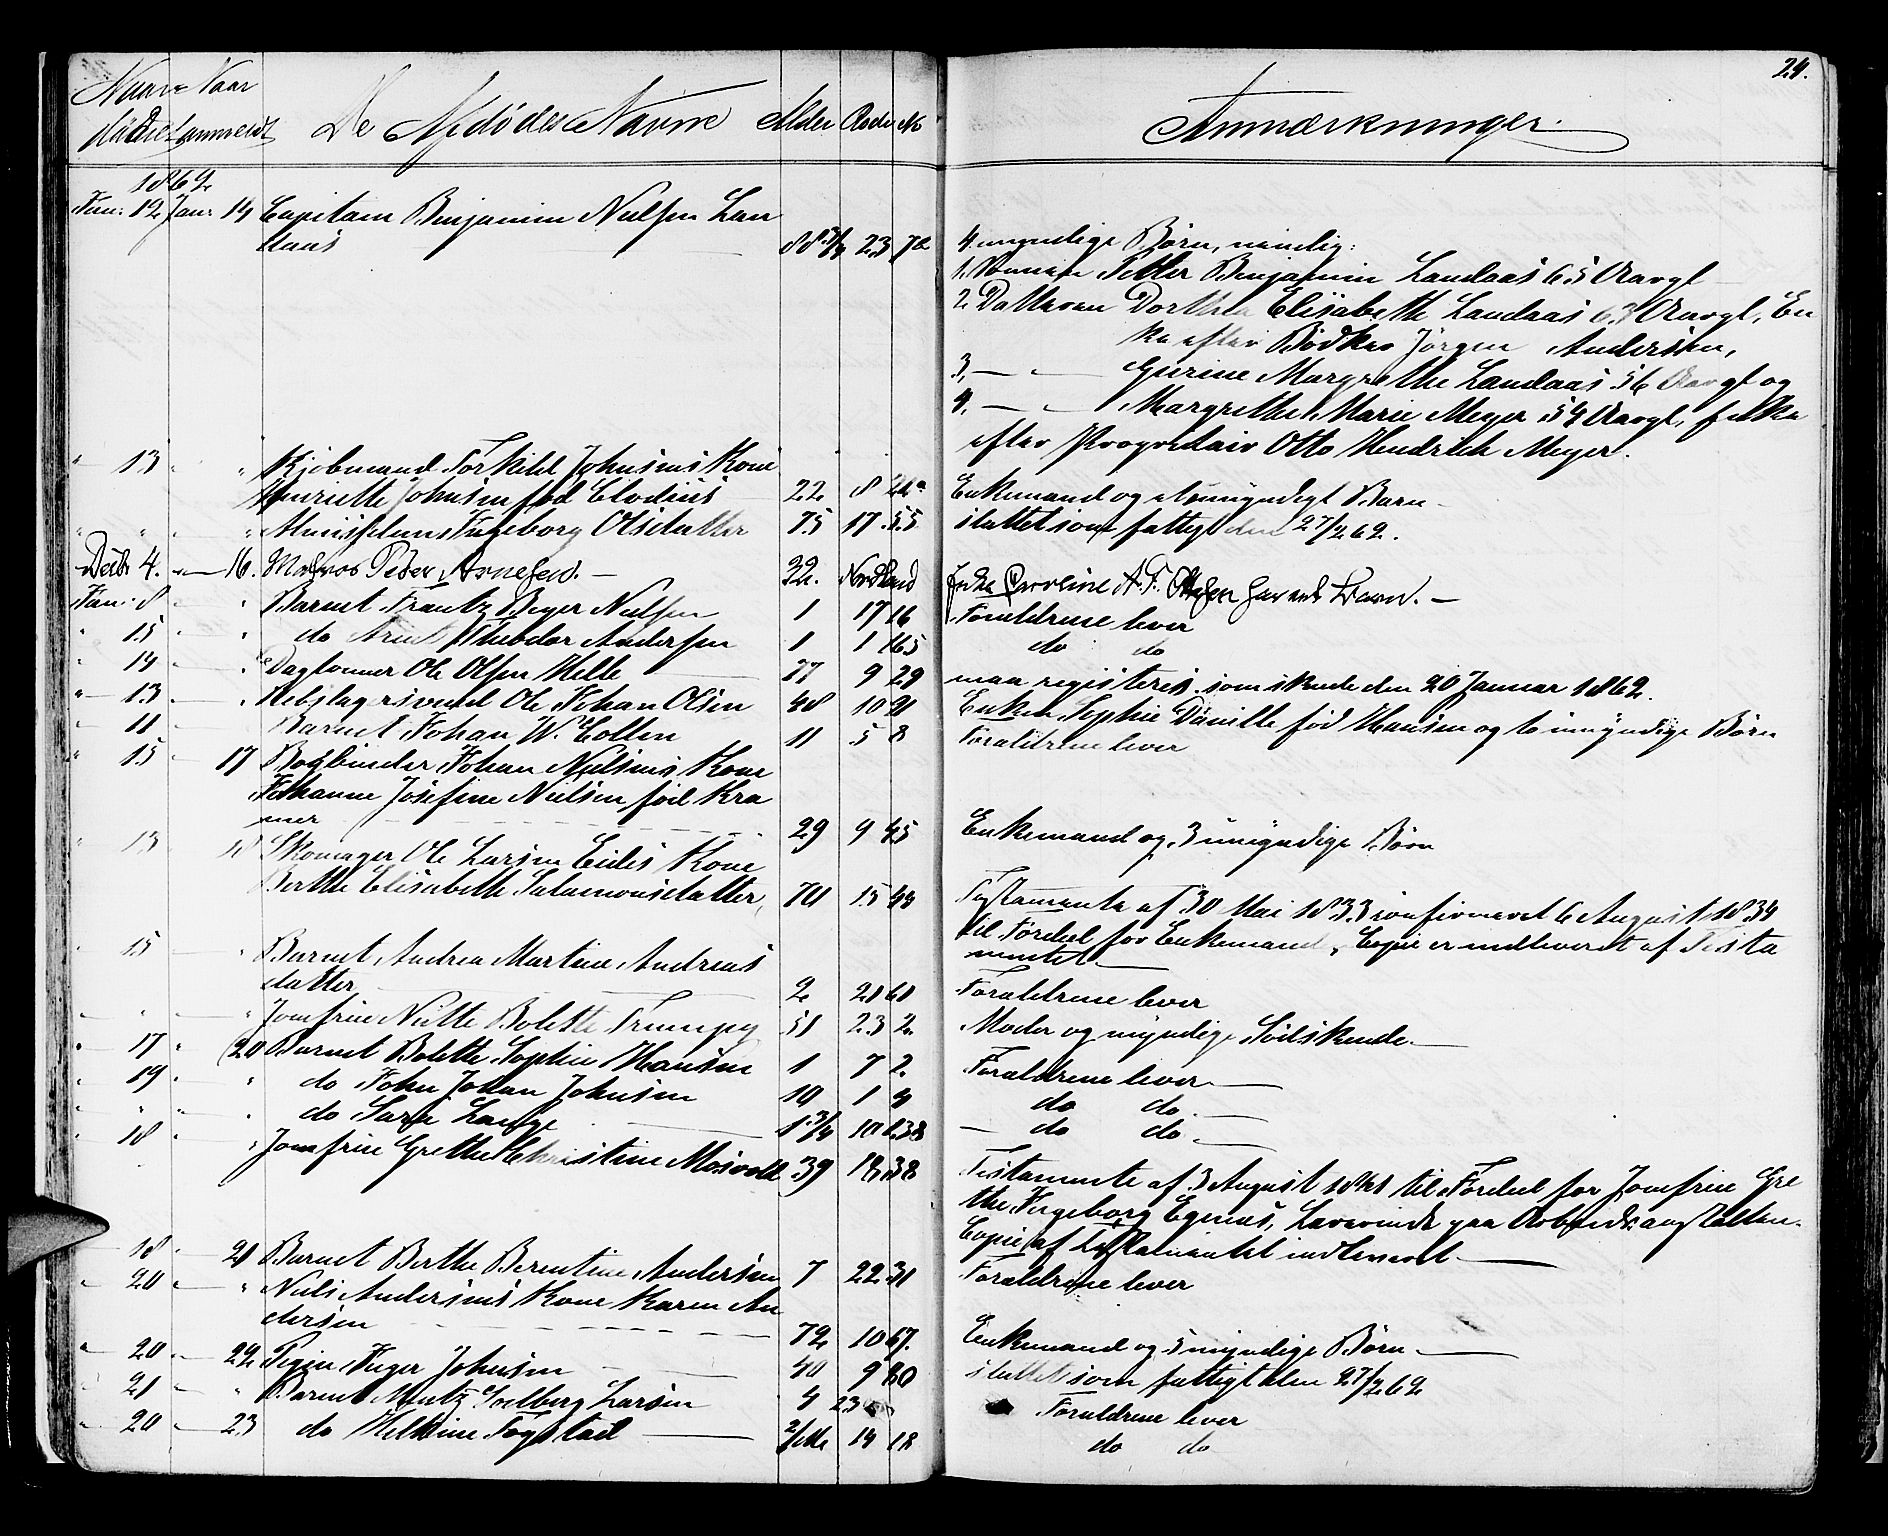 24.
Naar Naar
døde anmeldt De Afdødes Navne Alder Rode No Anmærkninger.
1862
Jan: 12 Jan: 14 Capitain Benjamin Nielsen Lan
daas 88 3/4 23 7a
4 myndige Børn, nemlig:
1. Sønnen Petter Benjamin Landaas 65 Aargl
2. Datteren Dorthea Elisabeth Landaas 63 Aargl, En
ke efter Bødker Jørgen Andersen,
3, — — Gurine Margrethe Landaas 56 Aargl og
4. — — Margrethe Marie Meyer 54 Aargl, Enke
efter Proprietair Otto Hendrich Meyer.
" 13 " " Kjøbmand Torkild Johnsens Kone
Henriette Johnsen fød Clodius 22 8 22a Enkemand og et umyndigt Barn
" " " Almisselem Ingeborg Olsdatter 75 17 55 sluttet som fattigt den 27/2 62.
Debr 4. — 16. Matros Peder Arnesen. — 32. Nordland Enke Caroline A. F. Olsen har et Barn. —
Jan: 8 — " Barnet Frantz Beyer Nielsen 1 17 16 Forældrene lever
" 15 — " do Arnt Theodor Andersen 1 1 165 do do
" 14 — " Daglønner Ole Olsen Helle 77 9 29 maa registeres, som skede den 20 Januar 1862.
" 13 — " Rebslagersvend Ole Johan Olsen 48 10 21 Enken Sophie Danille fød Hansen og to umyndige Børn
" 11 — Barnet Johan W. Collen 11 5 8 Forældrene lever
" 15 — 17 Bogbinder Johan Nielsens Kone
Johanne Josefine Nielsen fød Kra
mer 29 9 45 Enkemand og 3 umyndige Børn
" 13 18 Skomager Ole Larsen Eides Kone
Berthe Elisabeth Salamonsdatter, 70 15 44 Testamente af 30 Mai 1833 confirmeret 6 August 1834
til Fordel for Enkemand, Copie er indleveret af Testa
mentet
" 15 — " Barnet Andrea Martine Andreas
datter 2 21 61 Forældrene lever
" " " Jomfrue Nitte Bolette Trumpy 51 23 2 Moder og myndige Sødskende.
" 17 " 20 Barnet Bolette Sophie Hansen 1 7 2. Forældrene lever
" 19 — " do John Johan Johnsen 10 1 9 do do.
" " " " do Sara Lange 1 3/4 10 138 — do do.
" 18 — " Jomfrue Grethe Christine Mosvold 39 12 38 Testamente af 3 August 1841 til Fordel for Jomfrue Gre
the Ingeborg Egenæs, Lærerinde paa Arbeidsanstalten.
Copie af Testamentet indleveret
" 18 — 21 Barnet Berthe Berentine Andersen 7 22 31 Forældrene lever
" 20 — " Niels Andersens Kone Karen An
dersen 72 10 67. Enkemand og 5 myndige Børn
" 20 — 22 Pigen Inger Johnsen 40 9 80 sluttet som fattigt den 27/2 62
" 21 — " Barnet Mentz Solberg Larsen 4 23 Forældrene lever
" 20 — 23 do Helmine Fogstad 2/Md 14 18 do do